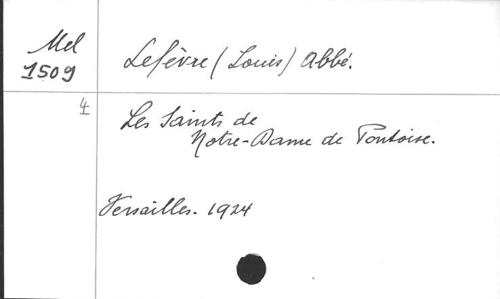 Mel
1509
Lefèvre (Louis) Abbé.
4
Les Saints de
Notre-Dame de Pontoise.
Versailles. 1924